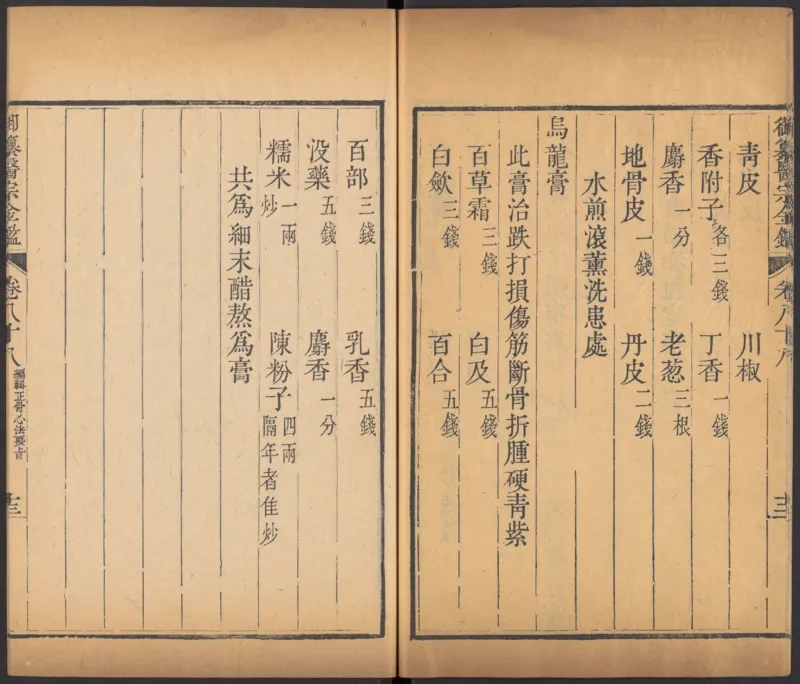 御纂醫宗金鑑 卷八十八 十三
青皮 川椒
香附子各三錢 丁香一錢
麝香一分 老葱三根
地骨皮一錢 丹皮二錢
水煎滾薰洗患處
烏龍膏
此膏治跌打損傷筋斷骨折腫硬青紫
百草霜三錢 白及五錢
白歛三錢 百合五錢
百部三錢 乳香五錢
没藥五錢 麝香一分
糯米一兩炒 陳粉子四兩隔年者佳炒
共爲細末醋熬爲膏
御纂醫宗金鑑 卷八十八 編輯正骨心法要旨 十三